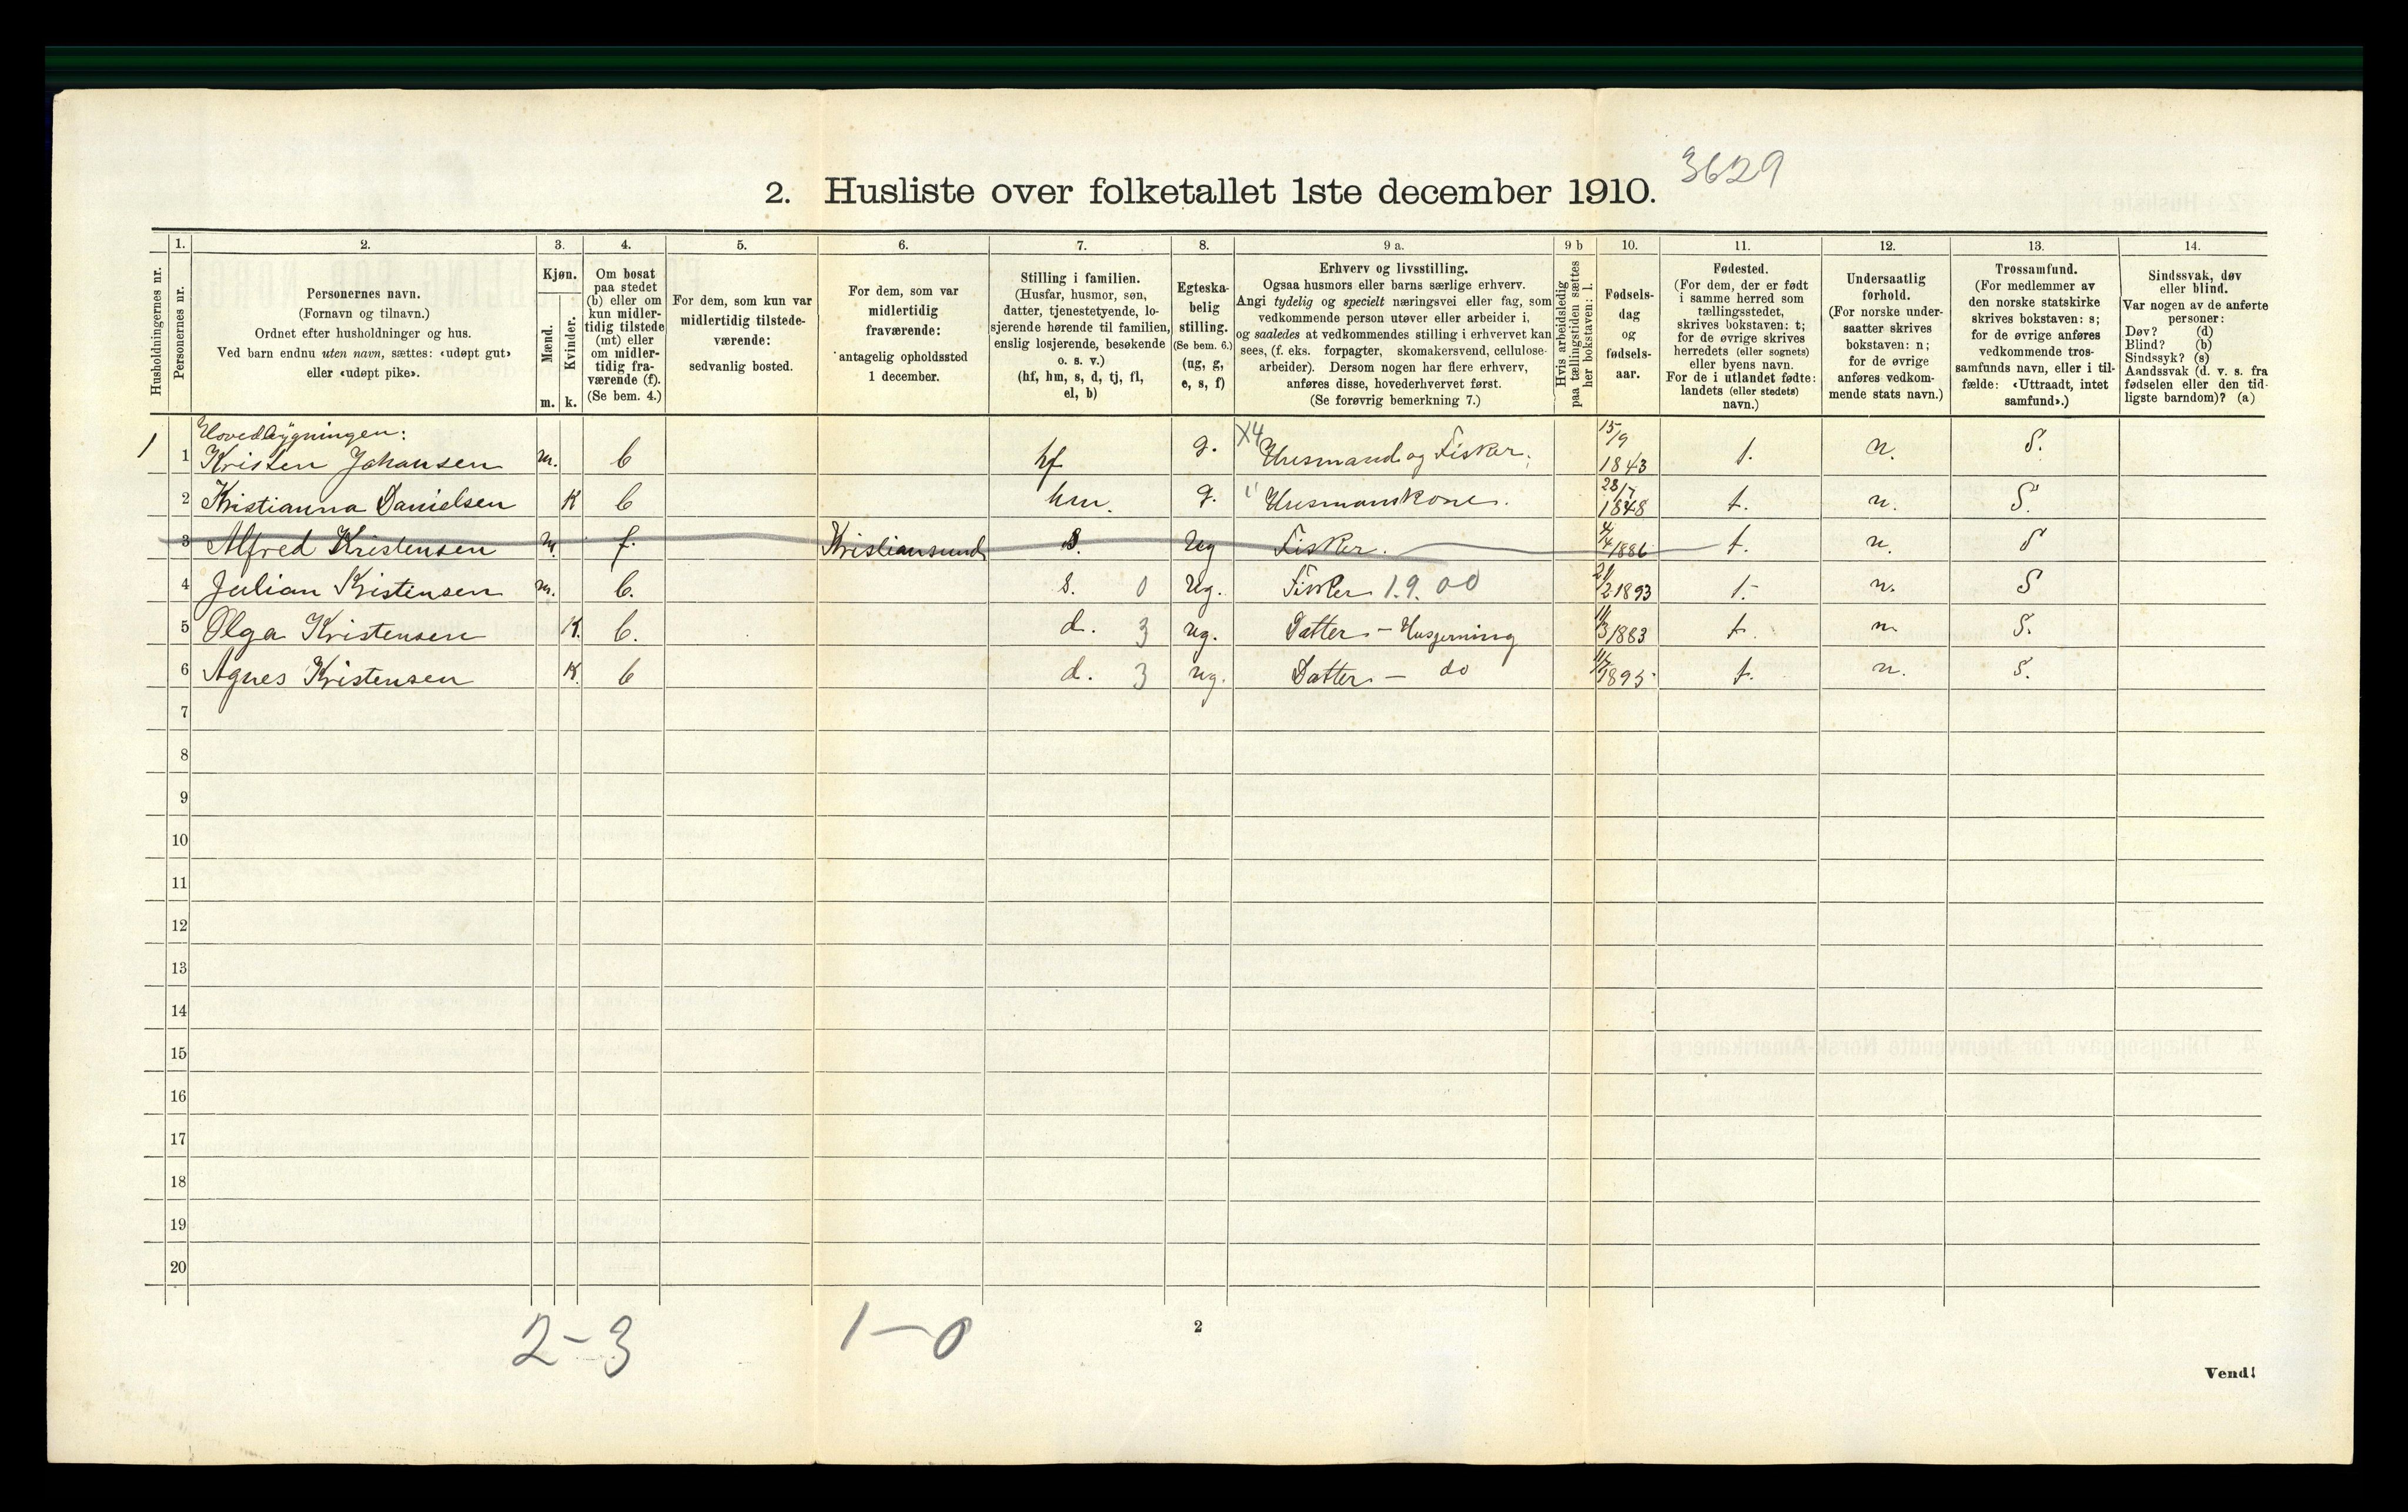 3629
2. Husliste over folketallet 1ste december 1910.
Husholdningernes nr.
1.
Personernes nr.
2.
Personernes navn.
(Fornavn og tilnavn.)
Ordnet efter husholdninger og hus.
Ved barn endnu uten navn, sættes: «udøpt gut»
eller «udøpt pike».
3.
Kjøn.
Mænd.
Kvinder.
m. k.
4.
Om bosat
paa stedet
(b) eller om
kun midler-
tidig tilstede
(mt) eller
om midler-
tidig fra-
værende (f).
(Se bem. 4.)
5.
For dem, som kun var
midlertidig tilstede-
værende:
sedvanlig bosted.
6.
For dem, som var
midlertidig
fraværende:
antagelig opholdssted
1 december.
7.
Stilling i familien.
(Husfar, husmor, søn,
datter, tjenestetyende, lo-
sjerende hørende til familien,
enslig losjerende, besøkende
o. s. v.)
(hf, hm, s, d, tj, fl,
el, b)
8.
Egteska-
belig
stilling.
(Se bem. 6.)
(ug, g,
e, s, f)
9 a.
Erhverv og livsstilling.
Ogsaa husmors eller barns særlige erhverv.
Angi tydelig og specielt næringsvei eller fag, som
vedkommende person utøver eller arbeider i,
og saaledes at vedkommendes stilling i erhvervet kan
sees, (f. eks. forpagter, skomakersvend, cellulose-
arbeider). Dersom nogen har flere erhverv,
anføres disse, hovederhvervet først.
(Se forøvrig bemerkning 7.)
9 b
Hvis arbeidsledig
paa tællingstiden sættes
her bokstaven: l.
10.
Fødsels-
dag
og
fødsels-
aar.
11.
Fødested.
(For dem, der er født
i samme herred som
tællingsstedet,
skrives bokstaven: t;
for de øvrige skrives
herredets (eller sognets)
eller byens navn.
For de i utlandet fødte:
landets (eller stedets)
navn.)
12.
Undersaatlig
forhold.
(For norske under-
saatter skrives
bokstaven: n;
for de øvrige
anføres vedkom-
mende stats navn.)
13.
Trossamfund.
(For medlemmer av
den norske statskirke
skrives bokstaven: s;
for de øvrige anføres
vedkommende tros-
samfunds navn, eller i til-
fælde: «Uttraadt, intet
samfund».)
14.
Sindssvak, døv
eller blind.
Var nogen av de anførte
personer:
Døv? (d)
Blind? (b)
Sindssyk? (s)
Aandssvak (d. v. s. fra
fødselen eller den tid-
ligste barndom)? (a)
Hovedbygningen:
1 1 Kristen Johansen m. b hf g. X4 Husmand og Fisker. 15/9 1843 t. n. S.
2 Kristianna Danielsen K b hm. g. " Husmanskone. 28/7 1848 t. n. S.
3 Alfred Kristensen m. f. Kristiansund s. ug Fisker. 4/4 1886 t. n. S
4 Julian Kristensen m. b. s. 0 ug. Fisker 1.9.00 21/2 1893 t. n. S
5 Olga Kristensen K. b. d. 3 ug. Datter - Husgjerning 11/3 1883 t. n. S.
6 Agnes Kristensen K. b d. 3 ug. Datter - do 1895 t. n. S.
7
8
9
10
11
12
13
14
15
16
17
18
19
20
2-3 1-0
2
Vend!